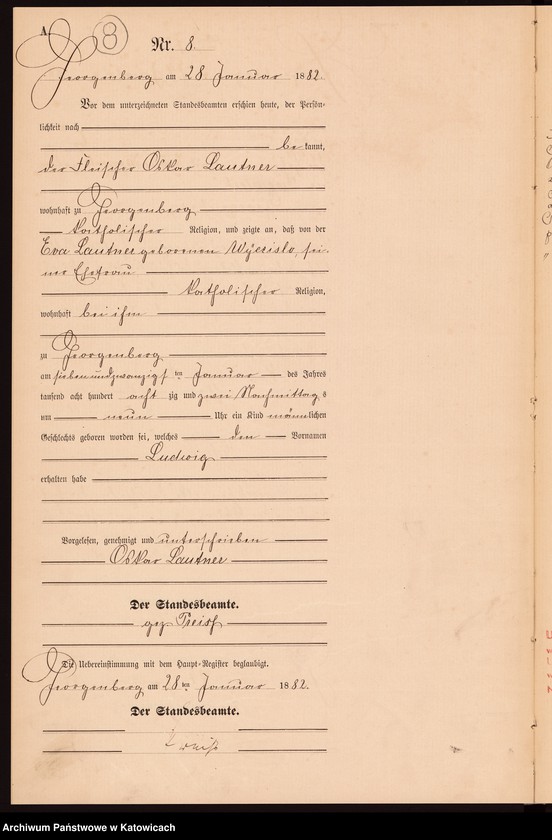 A
8
Nr. 8.
Georgenberg am 28 Januar 1882.
Vor dem unterzeichneten Standesbeamten erschien heute, der Persön-
lichkeit nach
bekannt,
der Fleischer Oskar Lautner
wohnhaft zu Georgenberg
katholischer Religion, und zeigte an, daß von der
Eva Lautner geborenen Wycislo, sei-
ner Ehefrau
katholischer Religion,
wohnhaft bei ihm
zu Georgenberg
am sieben und zwanzigsten Januar des Jahres
tausend acht hundert acht zig und zwei Nachmittags
um neun Uhr ein Kind männlichen
Geschlechts geboren worden sei, welches den Vornamen
Ludwig
erhalten habe
Vorgelesen, genehmigt und unterschrieben
Oskar Lautner
Der Standesbeamte.
gez.
Die Uebereinstimmung mit dem Haupt-Register beglaubigt.
Georgenberg am 28ten Januar 1882.
Der Standesbeamte.
Archiwum Państwowe w Katowicach